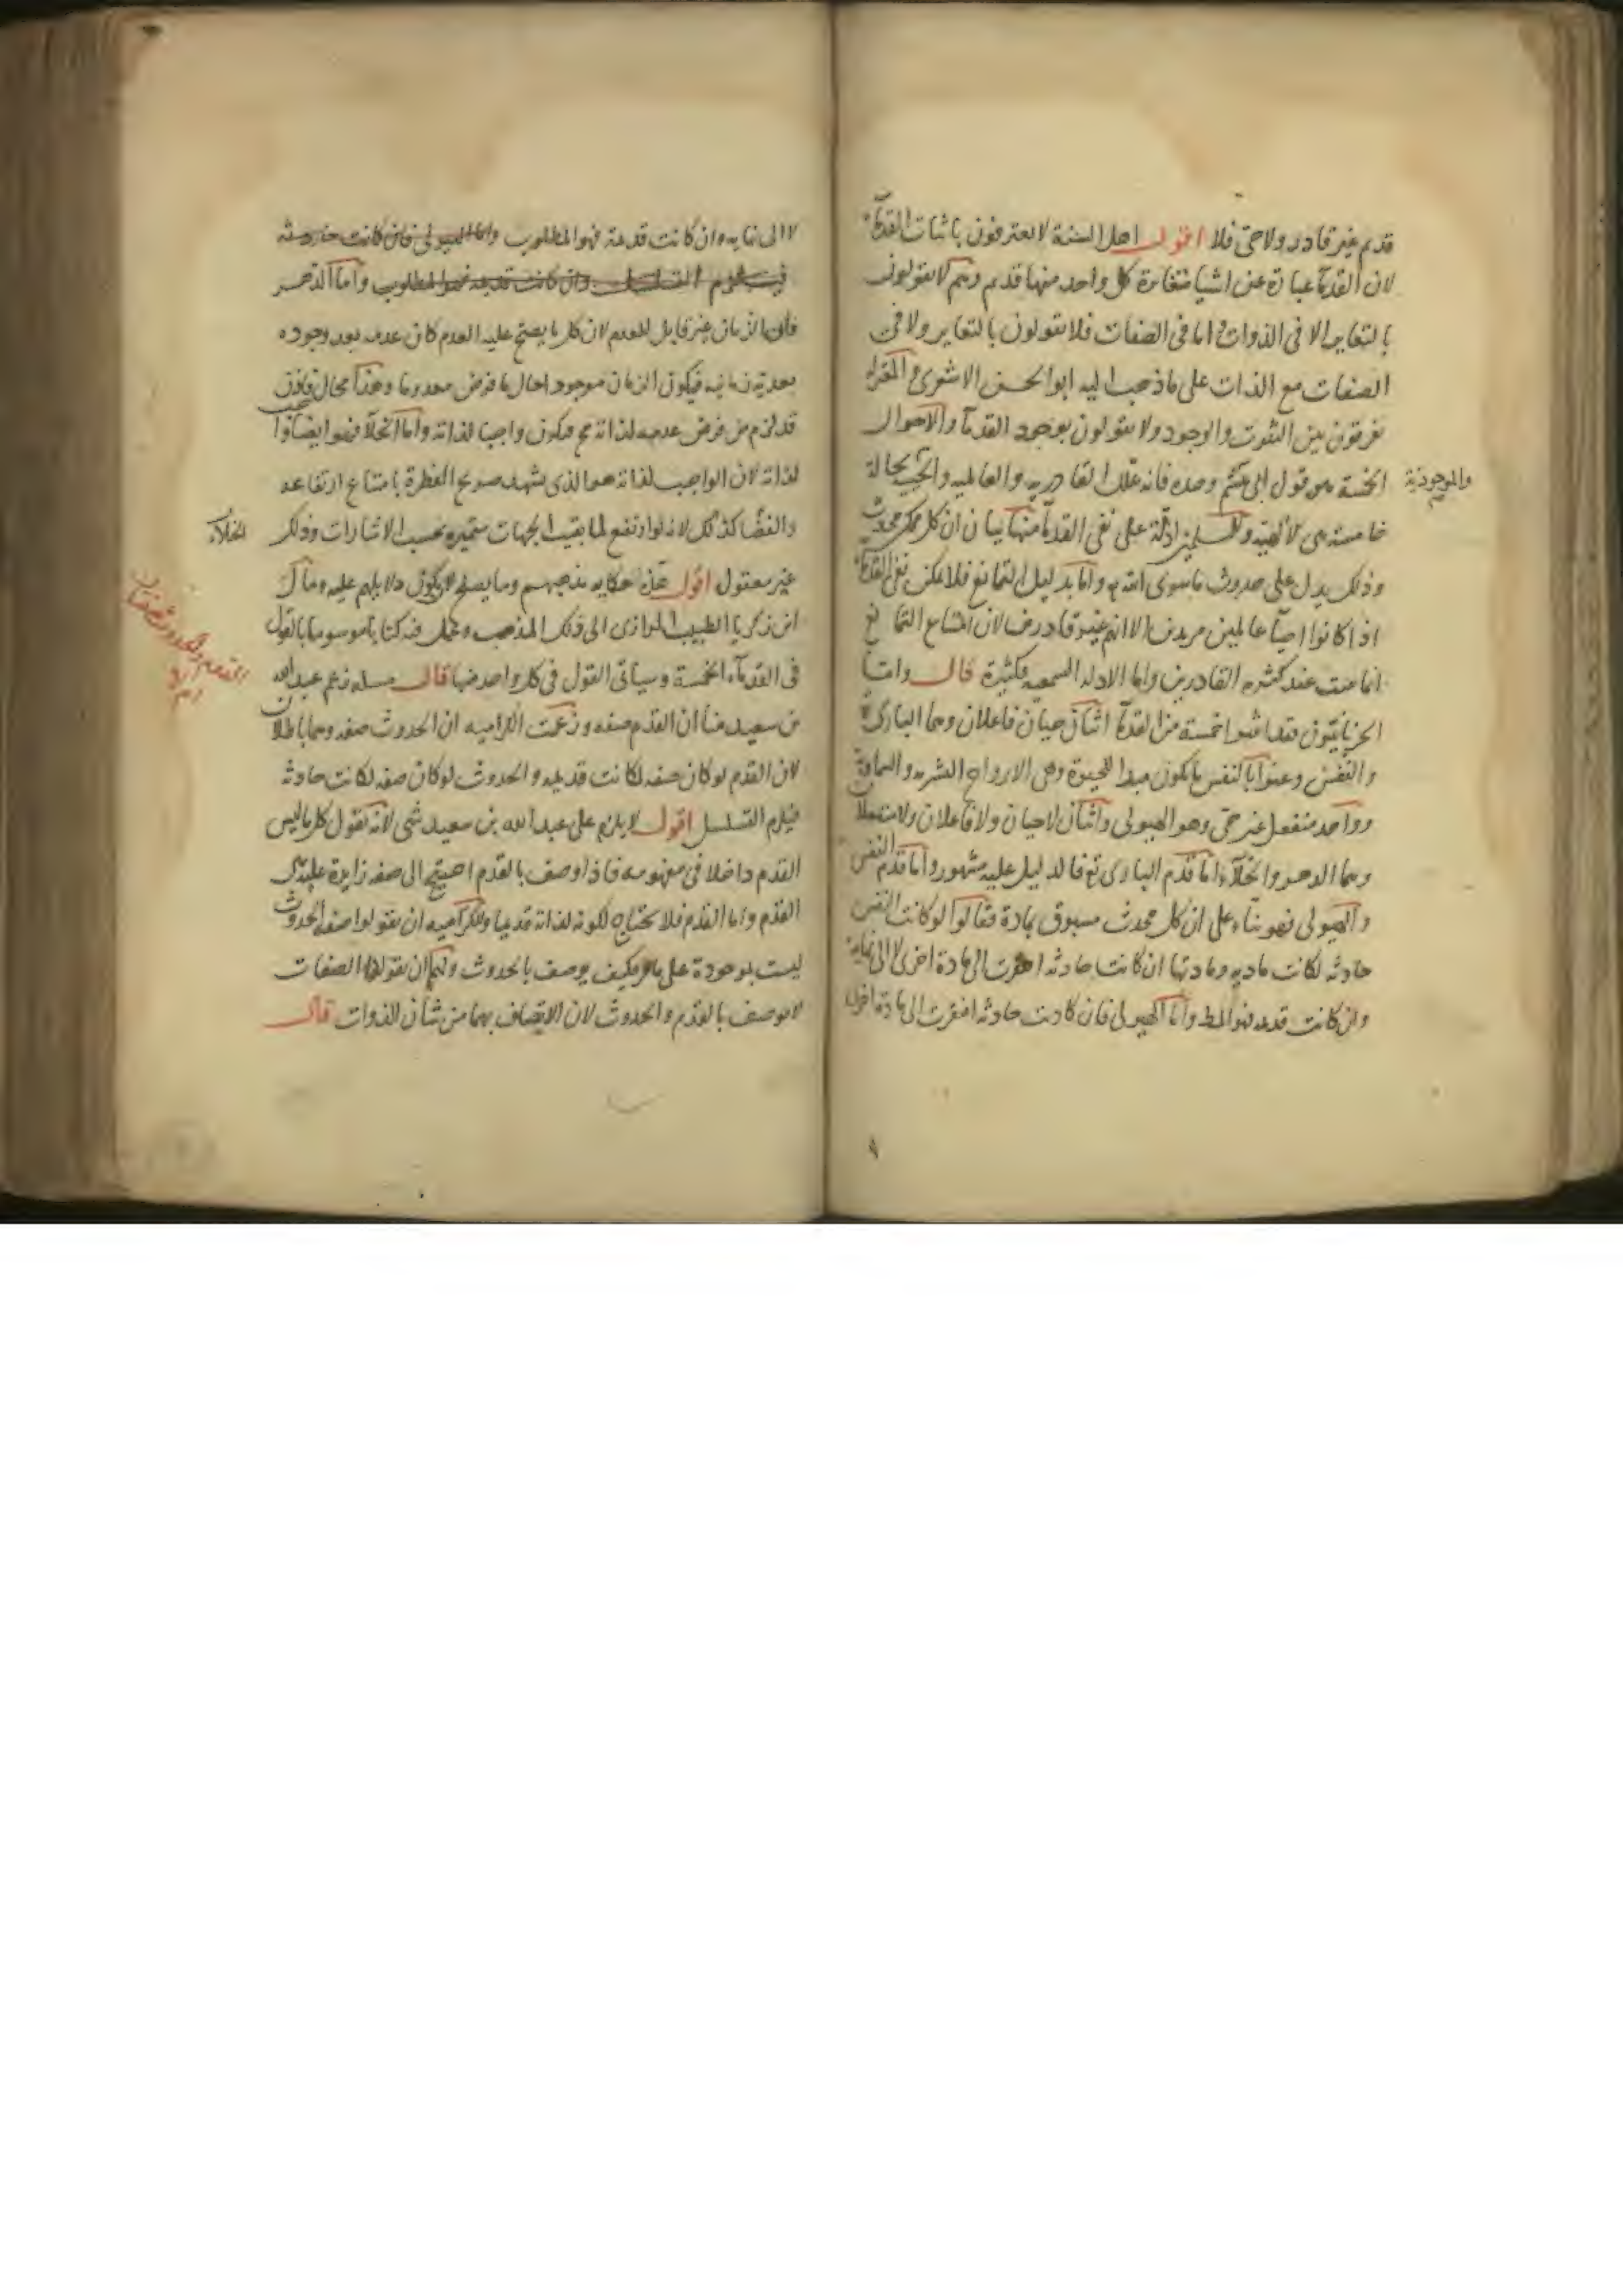 قديم غير قادر ولا حي فلا اقول اهل السنة لا يعترفون باثبات القدماء
لان القدماء عبارة عن اشياء متغايرة كل واحد منها قديم وهم لا يقولون
بالتغاير الا في الذوات واما في الصفات فلا يقولون بالتغاير ولا في
الصفات مع الذات على ما ذهب اليه ابو الحسن الاشعري والمعتزلة
يفرقون بين الثبوت والوجود ولا يقولون بوجود القدماء والاحوال
الخمسة هو قول ابي هاشم وحده فانه علل القادرية والعالمية والحيية بحالة
والموجودية
خامسة هي الالهية وللمسلمين ادلة على نفي القدماء منها بيان ان كل ممكن محدث
وذلك يدل على حدوث ما سوى الله واما بدليل التمانع فلا يمكن نفي القدماء
اذا كانوا احياء عالمين مريدين الا انهم غير قادرين لان امتناع التمانع
انما يثبت عند كثرة القادرين واما الادلة السمعية فكثيرة قال واما
الحرنانيون فقد اثبتوا خمسة من القدماء اثنان حيان فاعلان وهما الباري
والنفس وعنوا بالنفس ما يكون مبدا للحيوة وهي الارواح البشرية والسماوية
وواحد منفعل غير حي وهو الهيولى واثنان لا حيان ولا فاعلان ولا منفعلان
وهما الدهر والخلاء اما قدم الباري تع فالدليل عليه مشهور واما قدم النفس
والهيولى فهو بناء على ان كل محدث مسبوق بمادة فقالوا لو كانت النفس
حادثه لكانت ماديه ومادتها ان كانت حادثه افتقرت الى مادة اخرى لا الى نهاية
وان كانت قديمه فهو المط واما الهيولى فان كانت حادثه افتقرت الى مادة اخرى
لا الى نهايه وان كانت قديمة فهو المطلوب واما الهيولى فان كانت حادثه
فيلزم التسلسل وان كانت قديمه فهو المطلوب واما الدهر
فلان الزمان غير قابل للعدم لان كل ما يصح عليه العدم كان عدمه بعد وجوده
بعدية زمانيه فيكون الزمان موجودا حال ما فرض معدوما وهذا محال فاذن
قد لزم من فرض عدمه لذاته مح فيكون واجبا لذاته واما الخلاء فهو ايضا واجب
لذاته لان الواجب لذاته هو الذي يشهد صريح الفطرة بامتناع ارتفاعه
والفضا كذلك لانه لو ارتفع لما بقيت الجهات متميزه بحسب الاشارات وذلك
الخلاء
غير معقول اقول هذه حكايه مذهبهم وما يصلح لان يكون دلايلهم عليه ومال
ابن زكريا الطبيب الرازي الى ذلك المذهب وعمل فيه كتابا موسوما بالقول
في القدماء الخمسة وسياتي القول في كل واحد منها قال مسله زعم عبد الله
بن سعيد منا ان القدم صفه وزعمت الكراميه ان الحدوث صفه وهما باطلان
القدم والحدوث صفتان
ام لا
لان القدم لو كان صفه لكانت قديمه والحدوث لو كان صفه لكانت حادثه
فيلزم التسلسل اقول لا يلزم على عبد الله بن سعيد شي لانه يقول كل ما ليس
القدم داخلا في مفهومه فاذا وصف بالقدم احتيج الى صفه زايدة عليه هي
القدم واما القدم فلا يحتاج لكونه لذاته قديما وللكراميه ان يقولوا صفة الحدوث
ليست بموجودة على ما مر فكيف يوصف بالحدوث ولهما ان يقولا الصفات
لا توصف بالقدم والحدوث لان الاتصاف بهما من شان الذوات قال